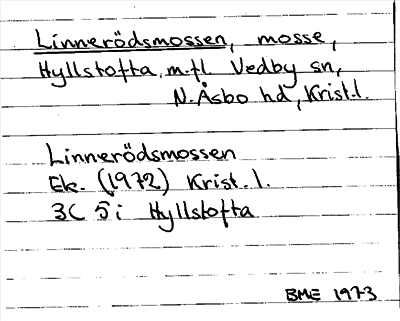 Linnerödsmossen, mosse,
Hyllstofta m.fl. Vedby sn,
N. Åsbo hd, Krist.l.
Linnerödsmossen
Ek. (1972) Krist. l.
3C 5i Hyllstofta
BME 1973